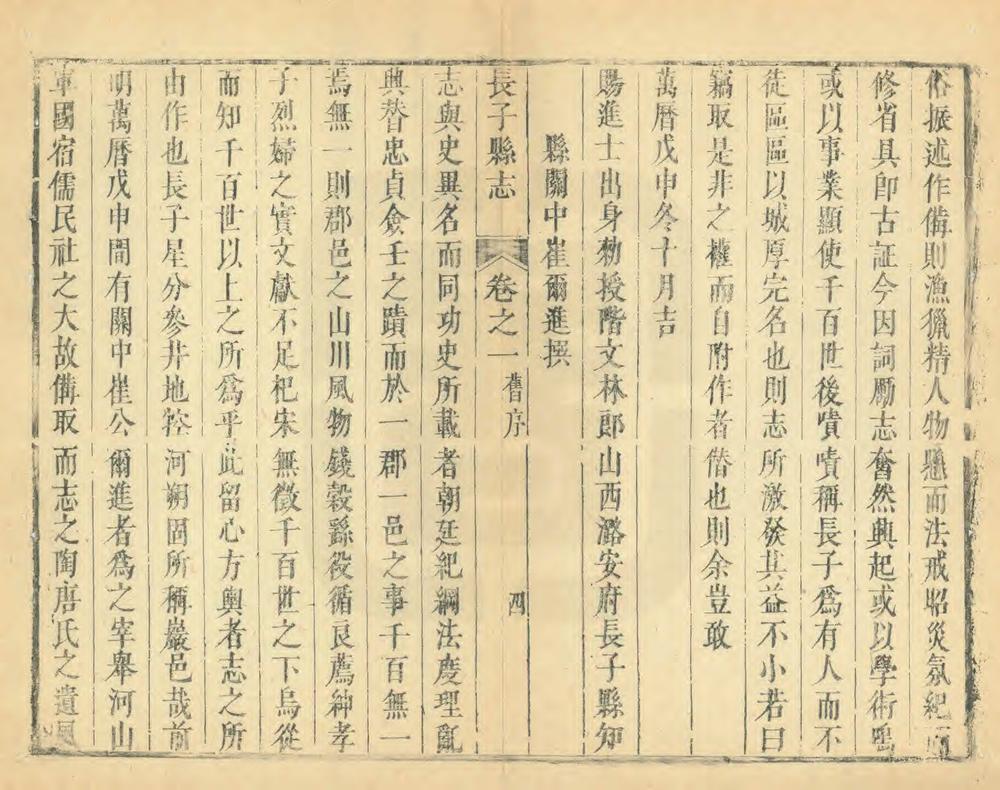 俗振述作備則漁獵精人物懸而法戒昭災氛紀而
修省具即古証今因詞勵志奮然興起或以學術鳴
或以事業顯使千百世後嘖嘖稱長子爲有人而不
徒區區以城厚完名也則志所激發其益不小若曰
竊取是非之權而自附作者僣也則余豈敢
萬曆戊申冬十月吉
賜進士出身勑授階文林郎山西潞安府長子縣知
縣關中崔爾進撰
長子縣志 卷之一 舊序 四
志與史異名而同功史所載者朝廷紀綱法度理亂
興替忠貞僉壬之蹟而於一郡一邑之事千百無一
焉無一則郡邑之山川風物錢穀繇役循良薦紳孝
子烈婦之實文獻不足杞宋無徵千百世之下烏從
而知千百世以上之所爲乎此留心方輿者志之所
由作也長子星分參井地控河朔固所稱巖邑哉前
明萬曆戊申間有關中崔公爾進者爲之宰舉河山
軍國宿儒民社之大故備取而志之陶唐氏之遺風